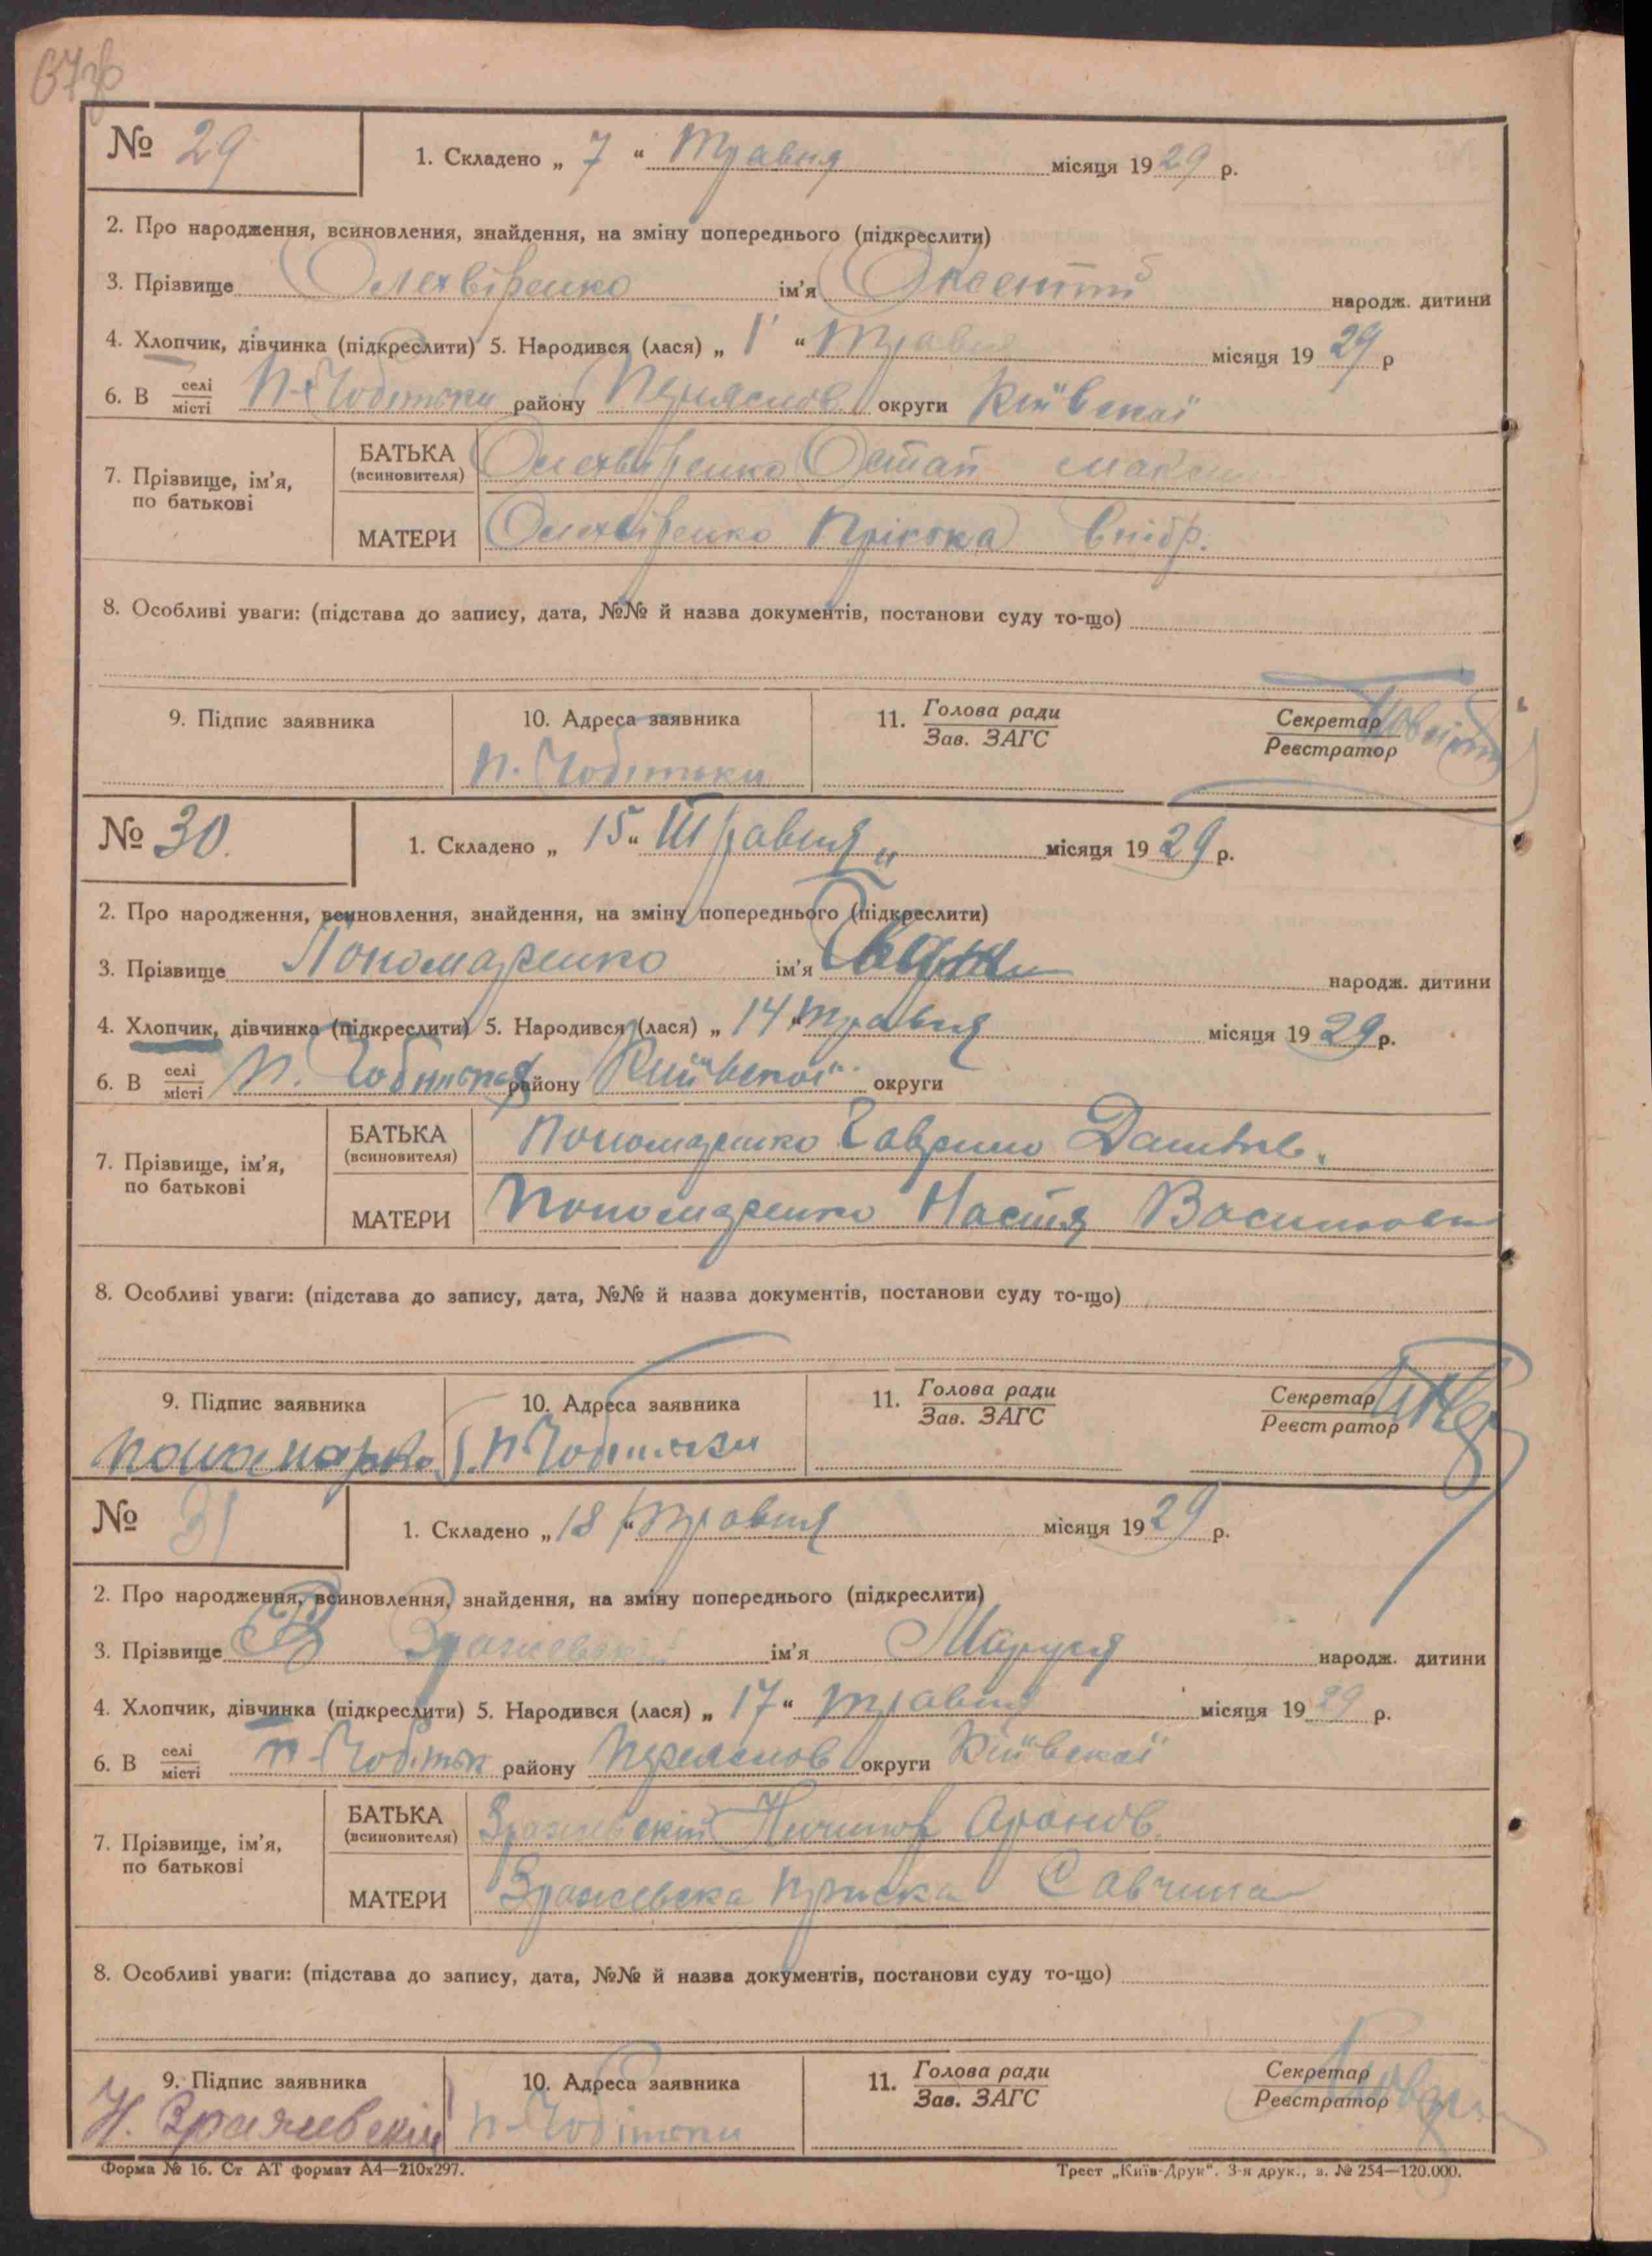 № 29
1. Складено „ 7 “ Травня місяця 1929 р.
2. Про народження, всиновления, знайдення, на зміну попереднього (підкреслити)
3. Прізвище Олехвіренко ім'я народж. дитини
4. Хлопчик, дівчинка (підкреслити) 5. Народився (лася) „ 1 “ Травня місяця 1929 р
6. В селі місті П-Чобітьки району Переяслов округи Київскої
7. Прізвище, ім'я, по батькові
БАТЬКА (всиновителя) Олехвіренко Остап Максим
МАТЕРИ Олехвіренко Пріська
8. Особливі уваги: (підстава до запису, дата, №№ й назва документів, постанови суду то-що)
9. Підпис заявника 10. Адреса заявника 11. Голова ради Зав. ЗАГС Секретар Реєстратор
П. Чобітьки
№ 30.
1. Складено „ 15 “ Травня місяця 1929 р.
2. Про народження, всиновлення, знайдення, на зміну попереднього (підкреслити)
3. Прізвище Пономаренко ім'я народж. дитини
4. Хлопчик, дівчинка (підкреслити) 5. Народився (лася) „ 14 “ Травня місяця 1929 р.
6. В селі місті П. району Київскої округи
7. Прізвище, ім'я, по батькові
БАТЬКА (всиновителя) Пономаренко Гаврило
МАТЕРИ Пономаренко Настя
8. Особливі уваги: (підстава до запису, дата, №№ й назва документів, постанови суду то-що)
9. Підпис заявника 10. Адреса заявника 11. Голова ради Зав. ЗАГС Секретар Реєстратор
П-Чобітьки
№ 31
1. Складено „ 18 “ Травня місяця 1929 р.
2. Про народження, всиновлення, знайдення, на зміну попереднього (підкреслити)
3. Прізвище Зражевскій ім'я Маруся народж. дитини
4. Хлопчик, дівчинка (підкреслити) 5. Народився (лася) „ 17 “ Травня місяця 1929 р.
6. В селі місті П-Чобітьк району Переяслов округи Київскої
7. Прізвище, ім'я, по батькові
БАТЬКА (всиновителя) Зражевскій Ничипор
МАТЕРИ Зражевска Приска Савчина
8. Особливі уваги: (підстава до запису, дата, №№ й назва документів, постанови суду то-що)
9. Підпис заявника 10. Адреса заявника 11. Голова ради Зав. ЗАГС Секретар Реєстратор
Н. Зражевскій П-Чобітьки
Форма № 16. Ст АТ формат А4—210х297. Трест „Київ-Друк“. 3-я друк., з. № 254—120.000.